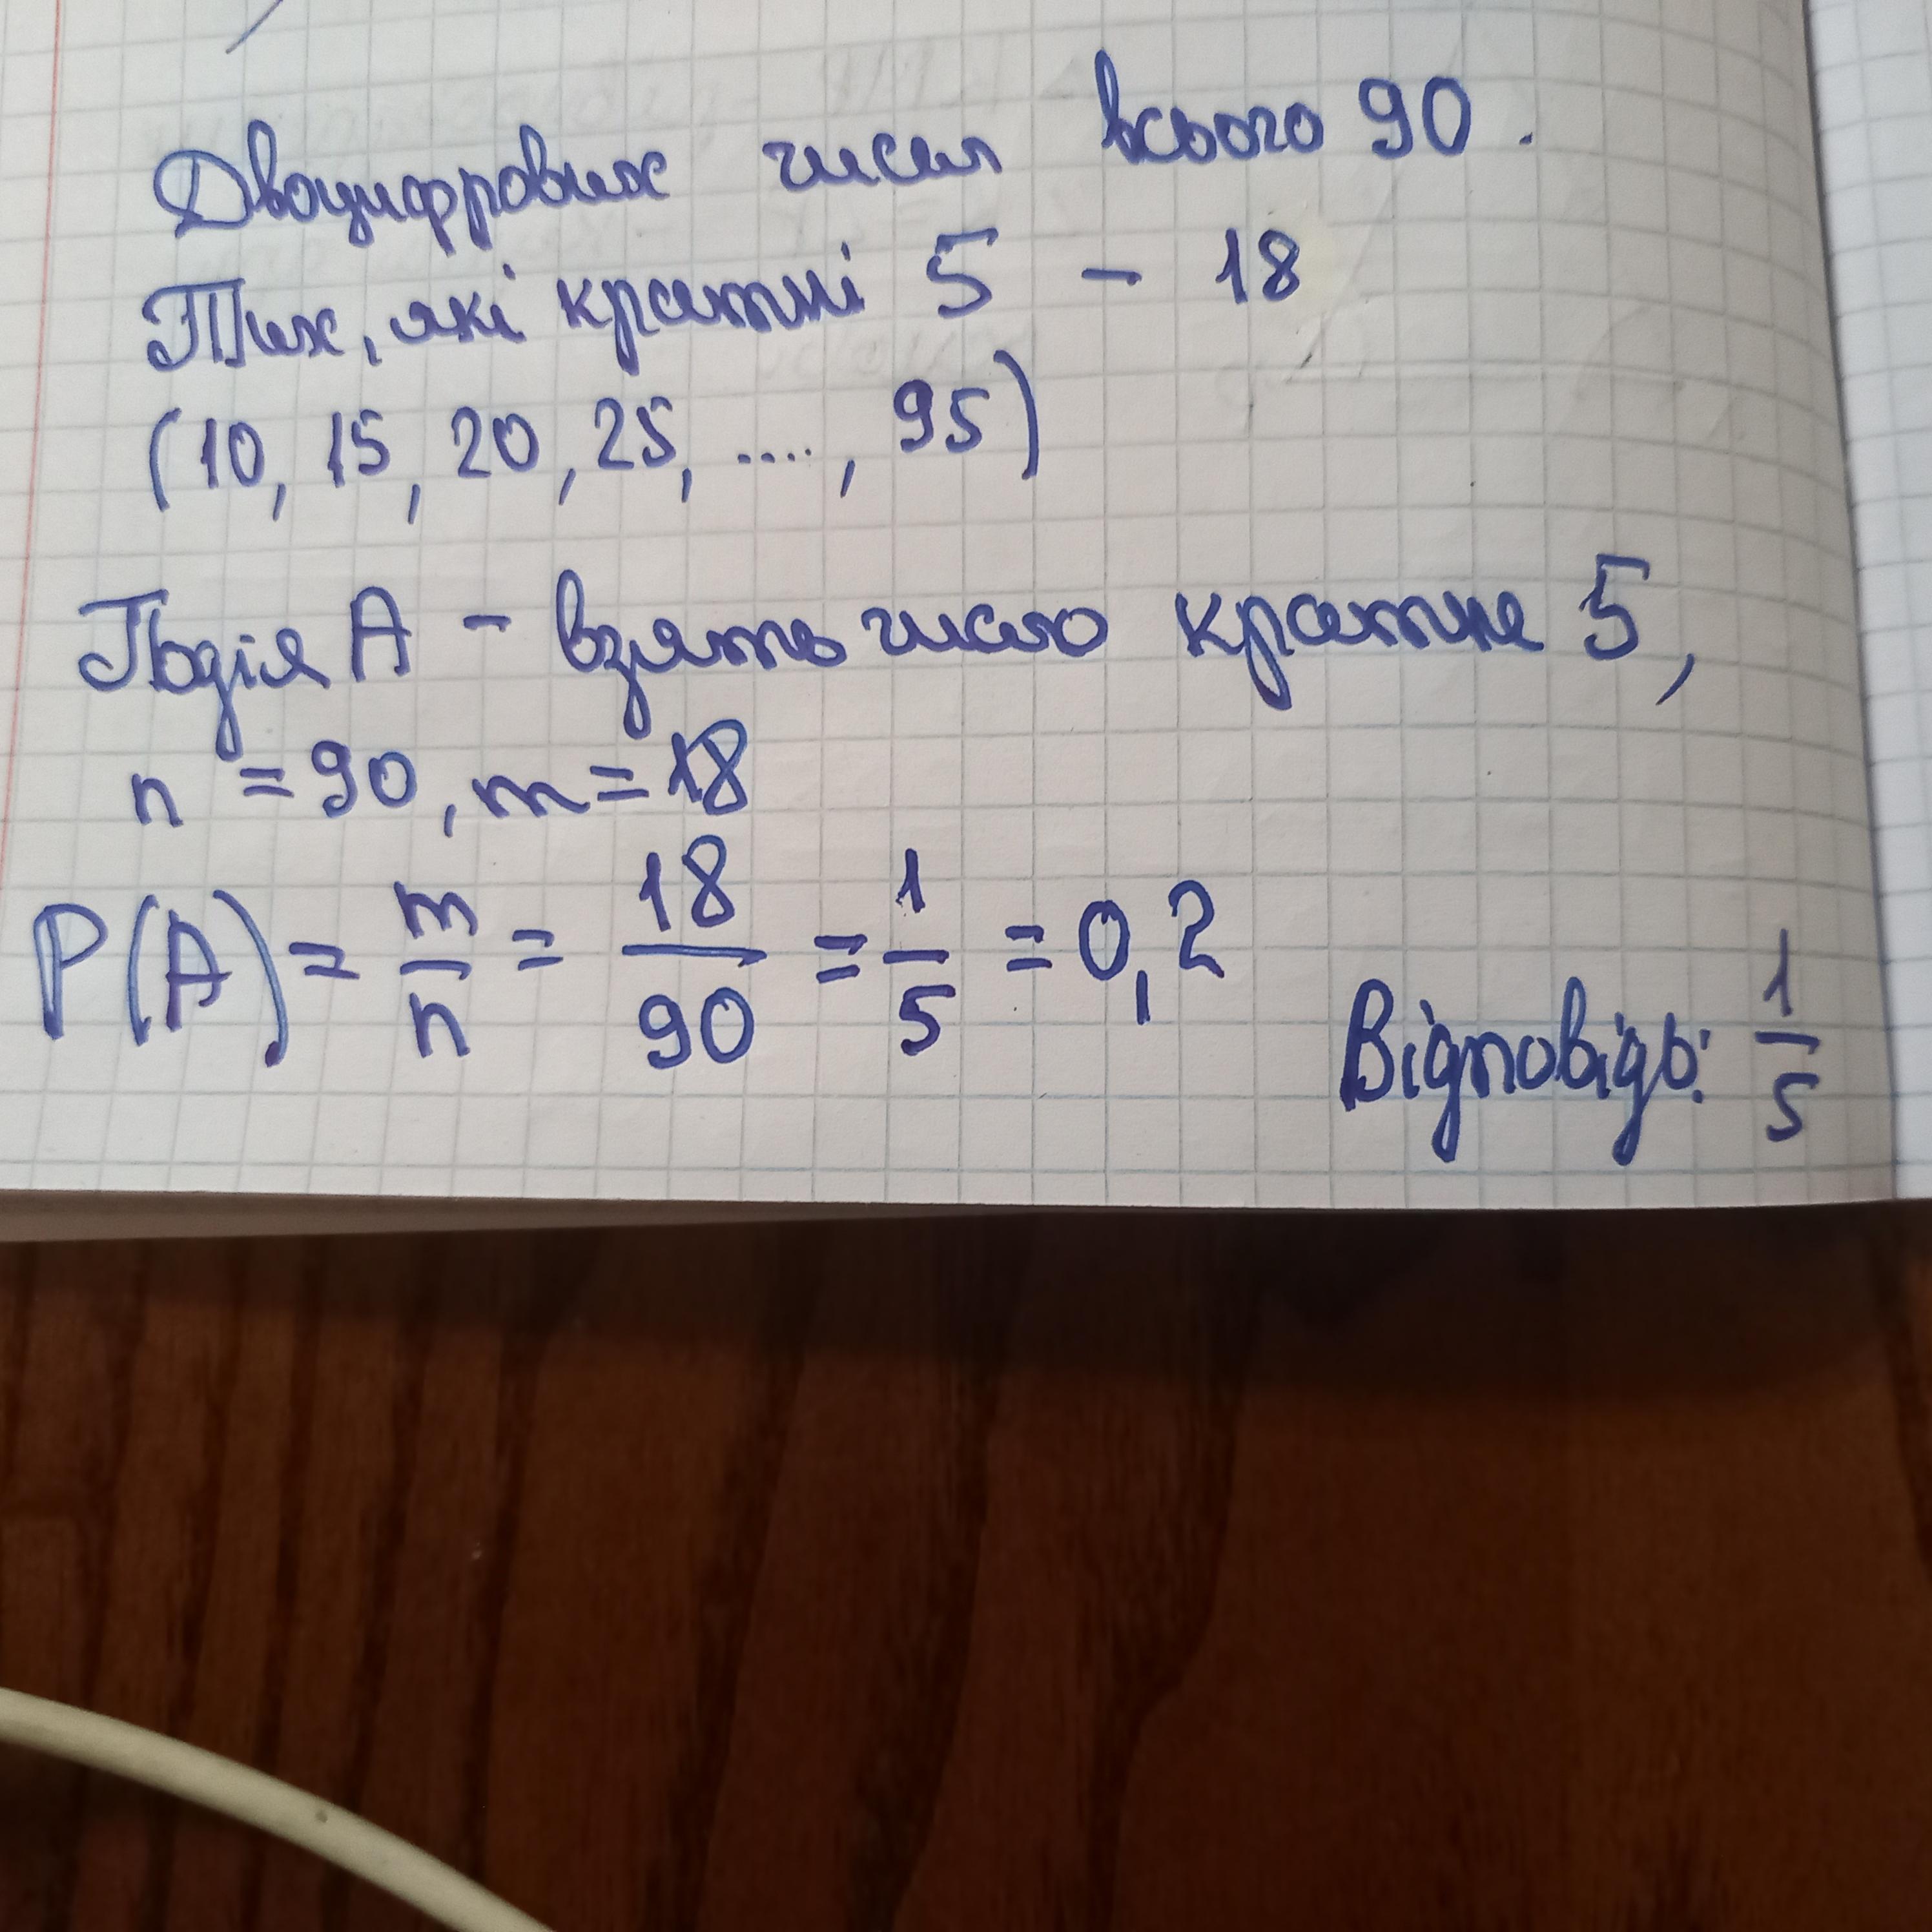 Двоцифрових чисел всього 90.
Тих, які кратні 5 - 18
(10, 15, 20, 25, ...., 95)
Подія A - взято число кратне 5,
n = 90, m = 18
P(A) = m/n = 18/90 = 1/5 = 0,2
Відповідь: 1/5